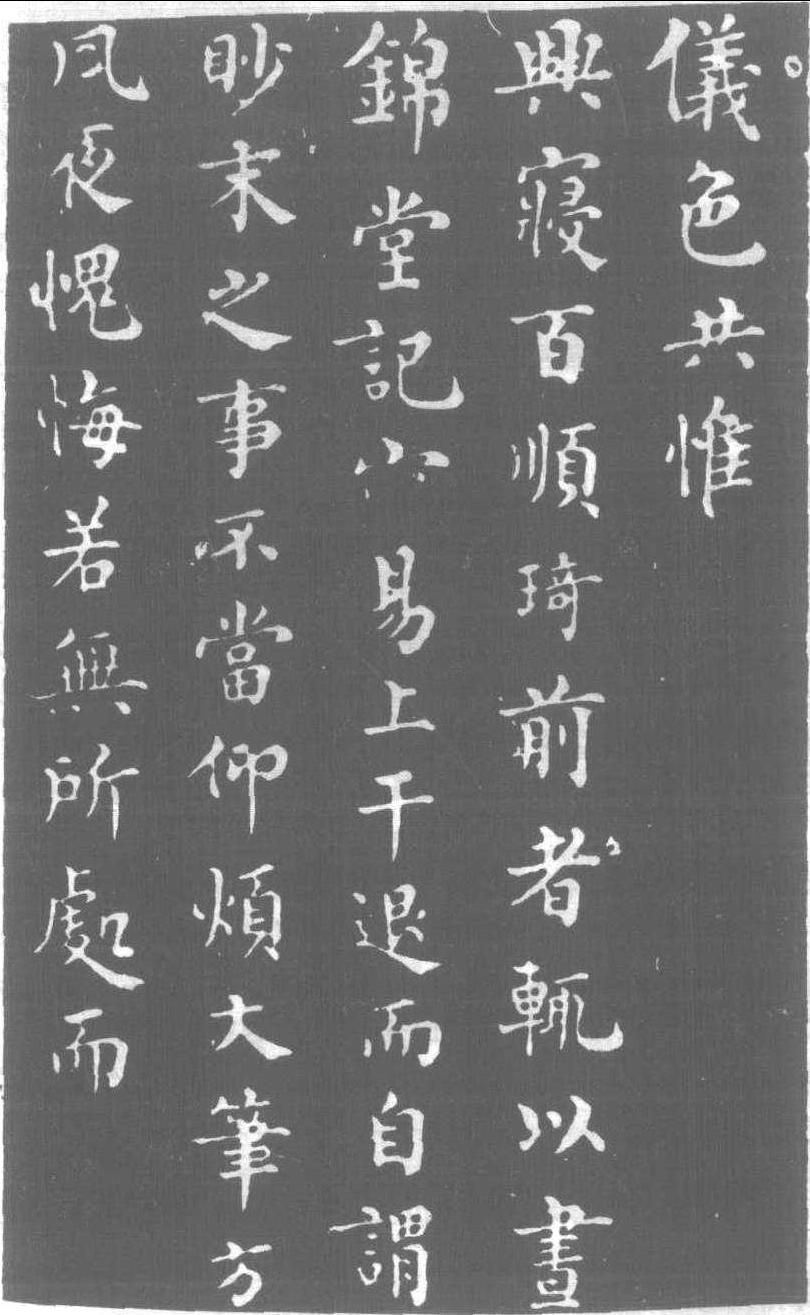 儀色共惟
興寢百順琦前者輒以晝
錦堂記容易上干退而自謂
眇末之事不當仰煩大筆方
夙夜愧悔若無所處而